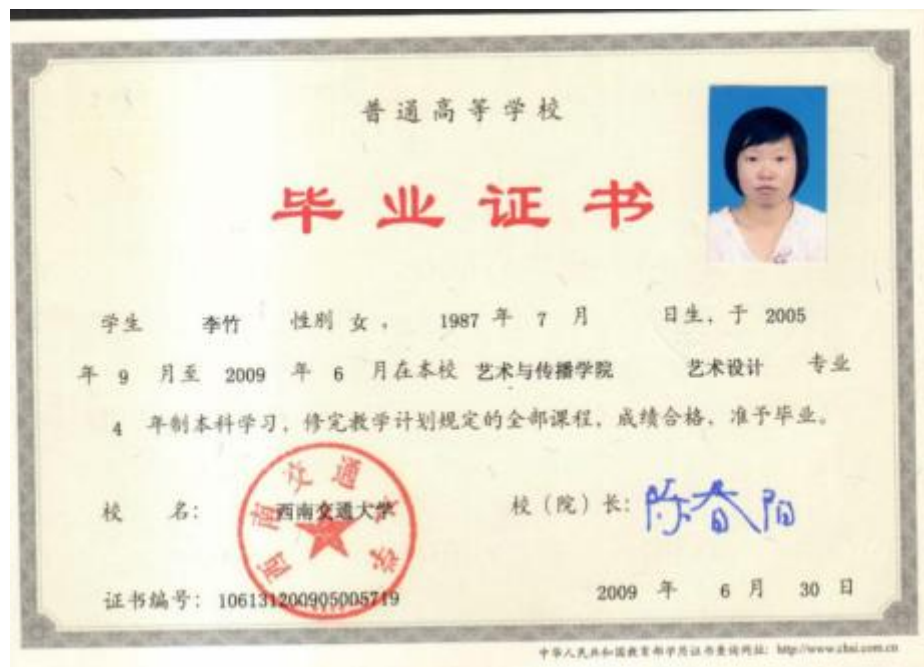 普通高等学校
毕业证书
学生 李竹 性别 女 , 1987 年 7 月 日生, 于 2005
年 9 月至 2009 年 6 月在本校 艺术与传播学院 艺术设计 专业
4 年制本科学习, 修完教学计划规定的全部课程, 成绩合格, 准予毕业。
校 名: 西南交通大学 校(院)长: 陈春阳
西南交通大学
证书编号: 106131200905005719 2009 年 6 月 30 日
中华人民共和国教育部学历证书查询网址: http://www.chsi.com.cn